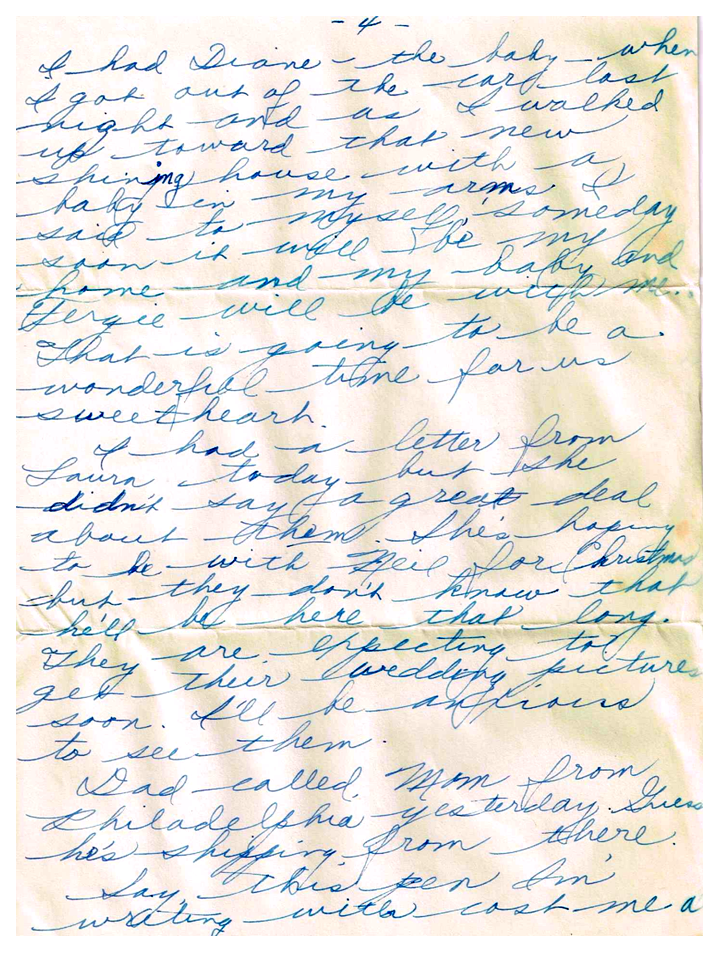 - 4 -
I had Diane - the baby - when
I got out of the car last
night and as I walked
up toward that new
shining house with a
baby in my arms I
said to myself, "someday
soon it will be my
home and my baby and
Fergie will be with me."
That is going to be a
wonderful time for us
sweetheart.
I had a letter from
Laura today but she
didn't say a great deal
about them. She's hoping
to be with Neil for Christmas
but they don't know that
he'll be here that long.
They are expecting to
get their wedding pictures
soon. I'll be anxious
to see them.
Dad called Mom from
Philadelphia yesterday. Guess
he's shipping from there.
Say, this pen I'm
writing with cost me a